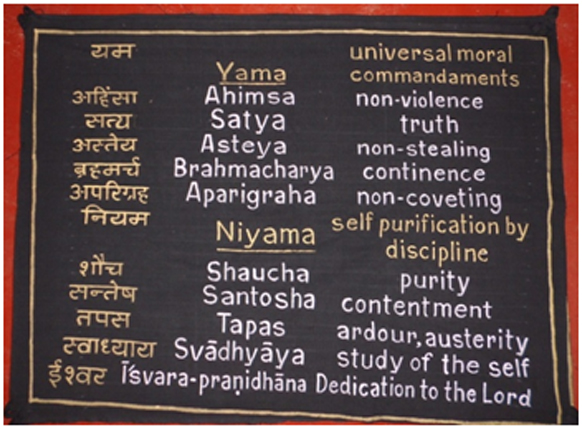 यम Yama universal moral
commandaments
अहिंसा Ahimsa non-violence
सत्य Satya truth
अस्तेय Asteya non-stealing
ब्रह्मर्च Brahmacharya continence
अपरिग्रह Aparigraha non-coveting
नियम Niyama self purification by
discipline
शौच Shaucha purity
सन्तेष Santosha contentment
तपस Tapas ardour, austerity
स्वाध्याय Svādhyāya study of the self
ईश्वर Īśvara-praṇidhāna Dedication to the Lord